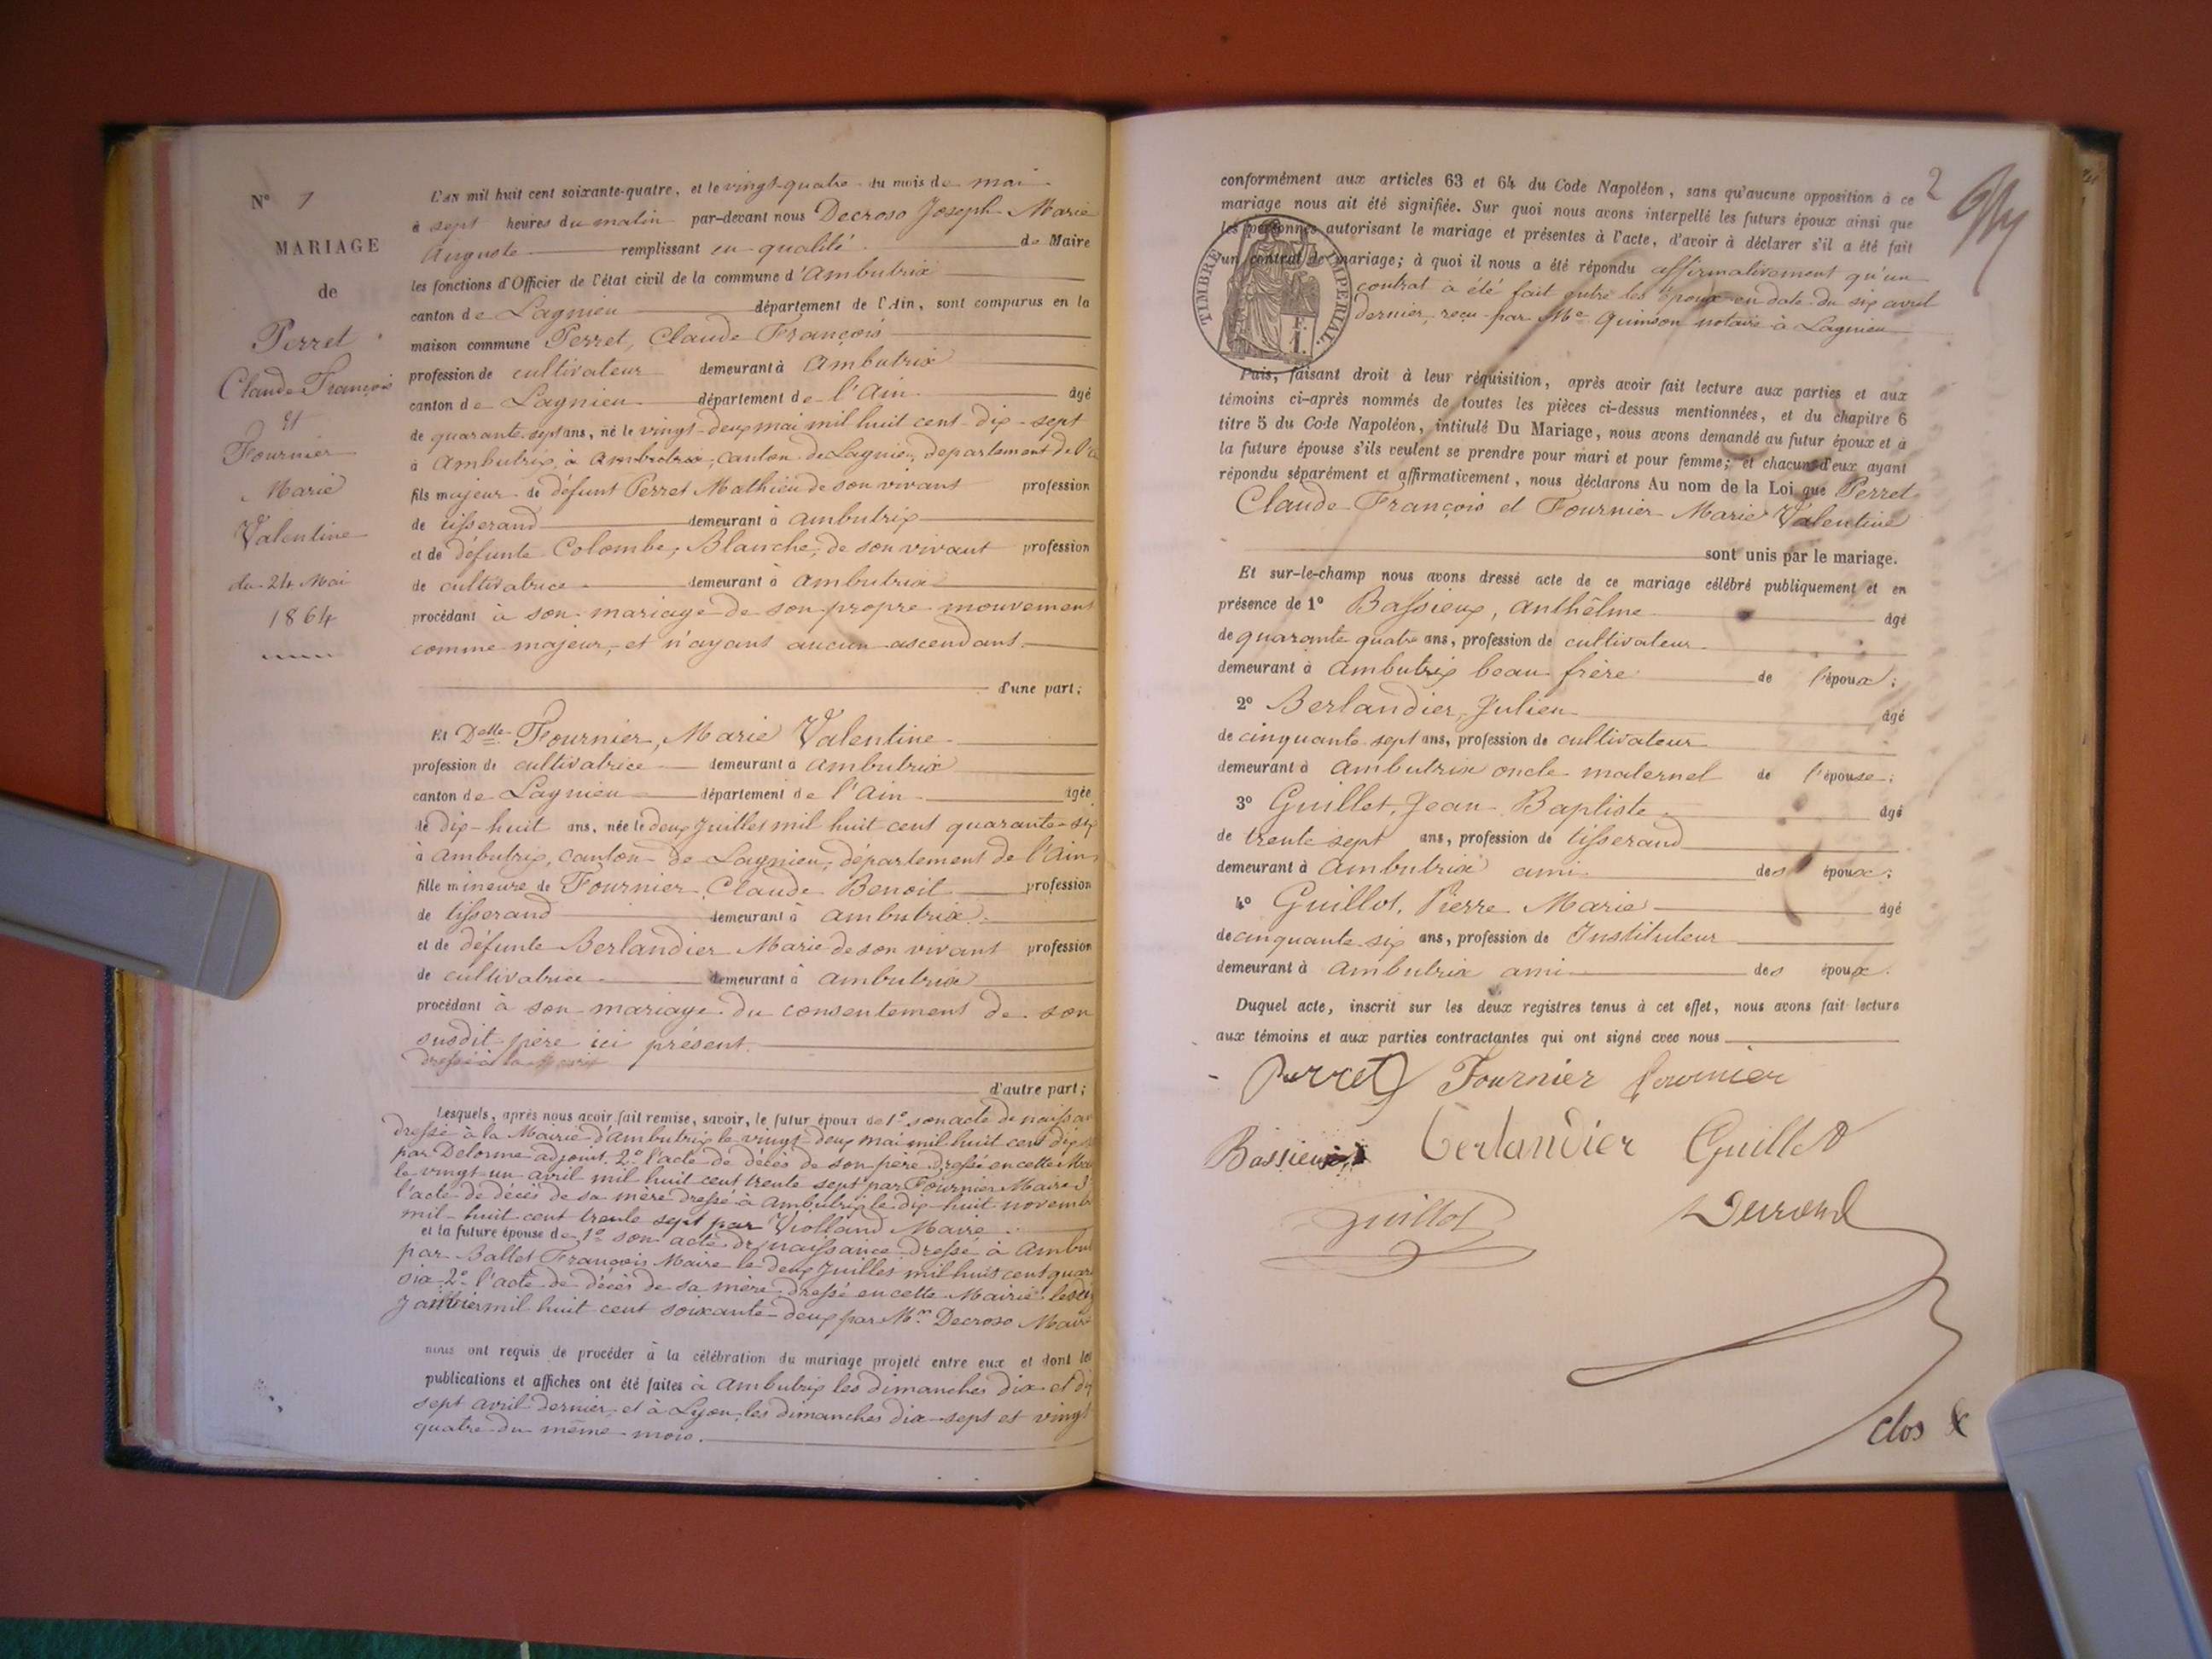 N° 1
MARIAGE
de
Perret
Claude François
et
Fournier
Marie
Valentine
du 24 Mai
1864
L'AN mil huit cent soixante-quatre, et le vingt-quatre du mois de mai
à sept heures du matin par-devant nous Decroso Joseph Marie
Auguste remplissant en qualité de Maire
les fonctions d'Officier de l'état civil de la commune d'Ambutrix
canton de Lagnieu département de l'Ain, sont comparus en la
maison commune Perret, Claude François
profession de cultivateur demeurant à Ambutrix
canton de Lagnieu département de l'Ain âgé
de quarante-sept ans, né le vingt-deux mai mil huit cent dix-sept
à Ambutrix, à Ambutrix, canton de Lagnieu, département de l'a
fils majeur de défunt Perret Mathieu de son vivant profession
de tisserand demeurant à ambutrix
et de défunte Colombe, Blanche, de son vivant profession
de cultivatrice demeurant à ambutrix
procédant à son mariage de son propre mouvement
comme majeur, et n'ayant aucun ascendant
d'une part;
Et Delle Fournier, Marie Valentine
profession de cultivatrice demeurant à ambutrix
canton de Lagnieu département de l'ain âgée
de dix-huit ans, née le deux Juillet mil huit cent quarante-six
à ambutrix, canton de Lagnieu, département de l'Ain
fille mineure de Fournier Claude Benoit profession
de tisserand demeurant à ambutrix
et de défunte Berlandier Marie de son vivant profession
de cultivatrice demeurant à ambutrix
procédant à son mariage du consentement de son
susdit père ici présent.
dressé à la
d'autre part;
Lesquels, après nous avoir fait remise, savoir, le futur époux de 1° son acte de naissan
dressé à la Mairie d'ambutrix le vingt-deux mai mil huit cent dix s
par Delorme adjoint. 2° l'acte de décès de son père dressé en cette Mai
le vingt un avril mil huit cent trente sept par Fournier Maire 3°
l'acte de décès de sa mère dressé à ambutrix le dix-huit novemb
mil-huit cent trente sept par Violland Maire
et la future épouse de 1° son acte de naissance dressé à Ambu
par Ballet François Maire le deux Juillet mil huit cent quara
six 2° l'acte de décès de sa mère dressé en cette Mairie le
Janvier mil huit cent soixante-deux par Mr. Decroso Maire
nous ont requis de procéder à la célébration du mariage projeté entre eux et dont les
publications et affiches ont été faites à ambutrix les dimanches dix et dix
sept avril dernier et à Lyon les dimanches dix-sept et vingt
quatre du même mois.
2
conformément aux articles 63 et 64 du Code Napoléon, sans qu'aucune opposition à ce
mariage nous ait été signifiée. Sur quoi nous avons interpellé les futurs époux ainsi que
les personnes autorisant le mariage et présentes à l'acte, d'avoir à déclarer s'il a été fait
un contrat de mariage; à quoi il nous a été répondu affirmativement qu'un
contrat a été fait entre les époux en date du six avril
dernier, reçu par Me Quinson notaire à Lagnieu
TIMBRE IMPERIAL
Puis, faisant droit à leur réquisition, après avoir fait lecture aux parties et aux
témoins ci-après nommés de toutes les pièces ci-dessus mentionnées, et du chapitre 6
titre 5 du Code Napoléon, intitulé Du Mariage, nous avons demandé au futur époux et à
la future épouse s'ils veulent se prendre pour mari et pour femme; et chacun d'eux ayant
répondu séparément et affirmativement, nous déclarons Au nom de la Loi que Perret
Claude François et Fournier Marie Valentine
sont unis par le mariage.
Et sur-le-champ nous avons dressé acte de ce mariage célébré publiquement et en
présence de 1° Bassieux, anthelme âgé
de quarante quatre ans, profession de cultivateur
demeurant à ambutrix beau frère de l'époux;
2° Berlandier, Julien âgé
de cinquante sept ans, profession de cultivateur
demeurant à ambutrix oncle maternel de l'épouse;
3° Guillet, Jean Baptiste âgé
de trente sept ans, profession de tisserand
demeurant à ambutrix ami des époux;
4° Guillot, Pierre Marie âgé
de cinquante-six ans, profession de Instituteur
demeurant à ambutrix ami des époux.
Duquel acte, inscrit sur les deux registres tenus à cet effet, nous avons fait lecture
aux témoins et aux parties contractantes qui ont signé avec nous
Perret Fournier fournier
Bassieux berlandier Guillet
guillot
clos